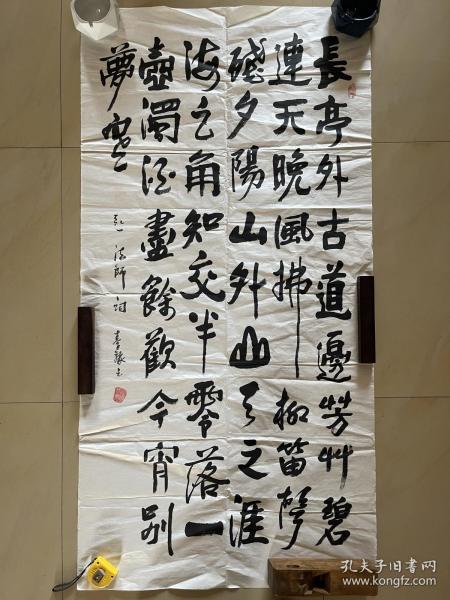 長亭外古道邊芳艸碧
連天晚風拂柳笛聲
殘夕陽山外山天之涯
海之角知交半零落一
壺濁酒盡餘歡今宵別
夢寒
弘一法師詞
孔夫子旧书网
www.kongfz.com